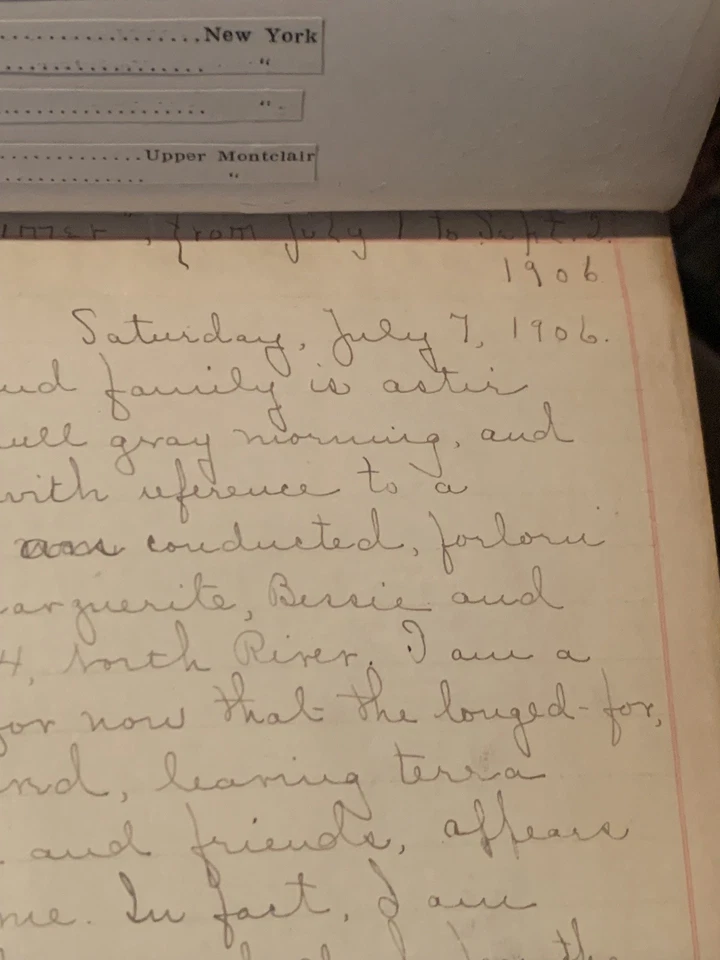 New York
"
"
Upper Montclair
"
from July 1 to Sept. 2.
1906
Saturday, July 7, 1906.
family is astir
gray morning, and
with reference to a
conducted, forlorn
arguerite, Bessie and
4, North River. I am a
for now that the longed-for,
leaving terra
and friends, appears
me. In fact, I am
the